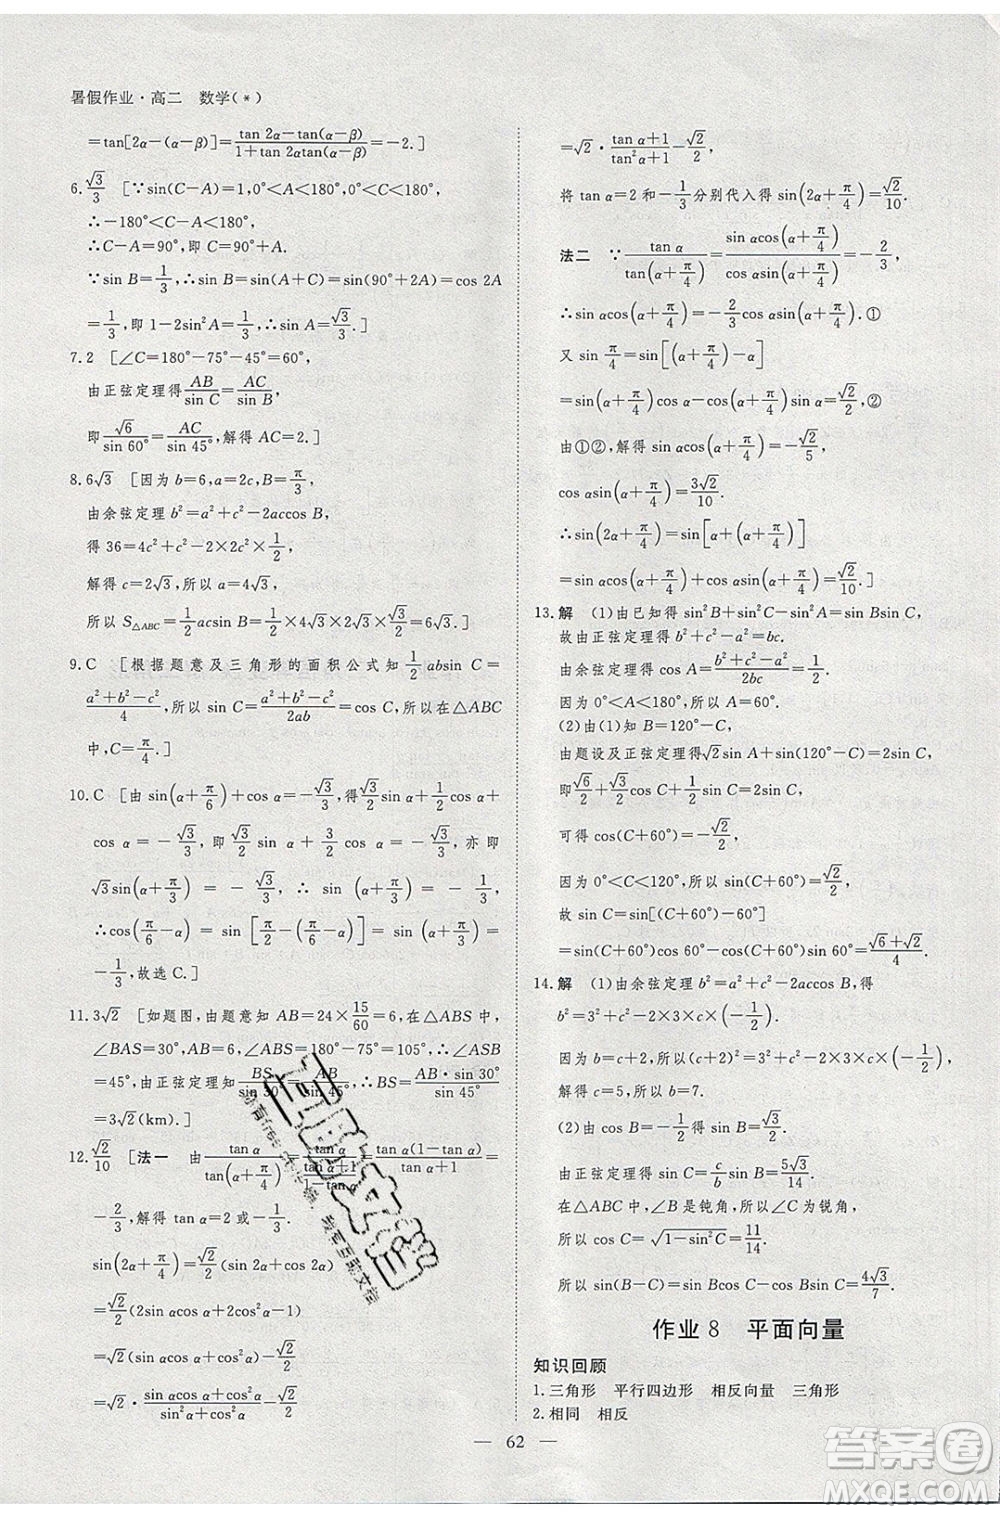 暑假作业·高二 数学(*)
=tan[2α-(α-β)]=\frac{tan 2α-tan(α-β)}{1+tan 2αtan(α-β)}=-2.]
6.\frac{√3}{3} [∵sin(C-A)=1,0°<A<180°,0°<C<180°,
∴-180°<C-A<180°.
∴C-A=90°,即C=90°+A.
∵sin B=\frac{1}{3},∴sin B=sin(A+C)=sin(90°+2A)=cos 2A
=\frac{1}{3},即1-2sin²A=\frac{1}{3},∴sin A=\frac{√3}{3}.]
7.2 [∠C=180°-75°-45°=60°,
由正弦定理得\frac{AB}{sin C}=\frac{AC}{sin B},
即\frac{√6}{sin 60°}=\frac{AC}{sin 45°},解得AC=2.]
8.6√3 [因为b=6,a=2c,B=\frac{π}{3},
由余弦定理b²=a²+c²-2accos B,
得36=4c²+c²-2×2c²×\frac{1}{2},
解得c=2√3,所以a=4√3,
所以S△ABC=\frac{1}{2}acsin B=\frac{1}{2}×4√3×2√3×\frac{√3}{2}=6√3.]
9.C [根据题意及三角形的面积公式知\frac{1}{2}absin C=
\frac{a²+b²-c²}{4},所以sin C=\frac{a²+b²-c²}{2ab}=cos C,所以在△ABC
中,C=\frac{π}{4}.]
10.C [由sin(α+\frac{π}{6})+cos α=-\frac{√3}{3},得\frac{√3}{2}sin α+\frac{1}{2}cos α+
cos α=-\frac{√3}{3},即\frac{√3}{2}sin α+\frac{3}{2}cos α=-\frac{√3}{3},亦即
√3sin(α+\frac{π}{3})=-\frac{√3}{3},∴sin(α+\frac{π}{3})=-\frac{1}{3},
∴cos(\frac{π}{6}-α)=sin[\frac{π}{2}-(\frac{π}{6}-α)]=sin(α+\frac{π}{3})=
-\frac{1}{3},故选C.]
11.3√2 [如题图,由题意知AB=24×\frac{15}{60}=6,在△ABS中,
∠BAS=30°,AB=6,∠ABS=180°-75°=105°,∴∠ASB
=45°,由正弦定理知\frac{BS}{sin 30°}=\frac{AB}{sin 45°},∴BS=\frac{AB·sin 30°}{sin 45°}
=3√2(km).]
12.\frac{√2}{10} [法一 由\frac{tan α}{tan(α+\frac{π}{4})}=\frac{tan α}{\frac{tan α+1}{1-tan α}}=\frac{tan α(1-tan α)}{tan α+1}=
-\frac{2}{3},解得tan α=2或-\frac{1}{3}.
sin(2α+\frac{π}{4})=\frac{√2}{2}(sin 2α+cos 2α)
=\frac{√2}{2}(2sin αcos α+2cos²α-1)
=√2(sin αcos α+cos²α)-\frac{√2}{2}
=√2·\frac{sin αcos α+cos²α}{sin²α+cos²α}-\frac{√2}{2}
=√2·\frac{tan α+1}{tan²α+1}-\frac{√2}{2},
将tan α=2和-\frac{1}{3}分别代入得sin(2α+\frac{π}{4})=\frac{√2}{10}.
法二 ∵\frac{tan α}{tan(α+\frac{π}{4})}=\frac{sin αcos(α+\frac{π}{4})}{cos αsin(α+\frac{π}{4})}=-\frac{2}{3},
∴sin αcos(α+\frac{π}{4})=-\frac{2}{3}cos αsin(α+\frac{π}{4}).①
又sin\frac{π}{4}=sin[(α+\frac{π}{4})-α]
=sin(α+\frac{π}{4})cos α-cos(α+\frac{π}{4})sin α=\frac{√2}{2},②
由①②,解得sin αcos(α+\frac{π}{4})=-\frac{√2}{5},
cos αsin(α+\frac{π}{4})=\frac{3√2}{10}.
∴sin(2α+\frac{π}{4})=sin[α+(α+\frac{π}{4})]
=sin αcos(α+\frac{π}{4})+cos αsin(α+\frac{π}{4})=\frac{√2}{10}.]
13.解 (1)由已知得sin²B+sin²C-sin²A=sin Bsin C,
故由正弦定理得b²+c²-a²=bc.
由余弦定理得cos A=\frac{b²+c²-a²}{2bc}=\frac{1}{2}.
因为0°<A<180°,所以A=60°.
(2)由(1)知B=120°-C,
由题设及正弦定理得√2sin A+sin(120°-C)=2sin C,
即\frac{√6}{2}+\frac{√3}{2}cos C+\frac{1}{2}sin C=2sin C,
可得cos(C+60°)=-\frac{√2}{2}.
因为0°<C<120°,所以sin(C+60°)=\frac{√2}{2},
故sin C=sin[(C+60°)-60°]
=sin(C+60°)cos 60°-cos(C+60°)sin 60°=\frac{√6+√2}{4}.
14.解 (1)由余弦定理b²=a²+c²-2accos B,得
b²=3²+c²-2×3×c×(-\frac{1}{2}).
因为b=c+2,所以(c+2)²=3²+c²-2×3×c×(-\frac{1}{2}),
解得c=5.所以b=7.
(2)由cos B=-\frac{1}{2}得sin B=\frac{√3}{2}.
由正弦定理得sin C=\frac{c}{b}sin B=\frac{5√3}{14}.
在△ABC中,∠B是钝角,所以∠C为锐角,
所以cos C=\sqrt{1-sin²C}=\frac{11}{14}.
所以sin(B-C)=sin Bcos C-cos Bsin C=\frac{4√3}{7}.
作业8 平面向量
知识回顾
1.三角形 平行四边形 相反向量 三角形
2.相同 相反
— 62 —
答案卷
MXQE.COM